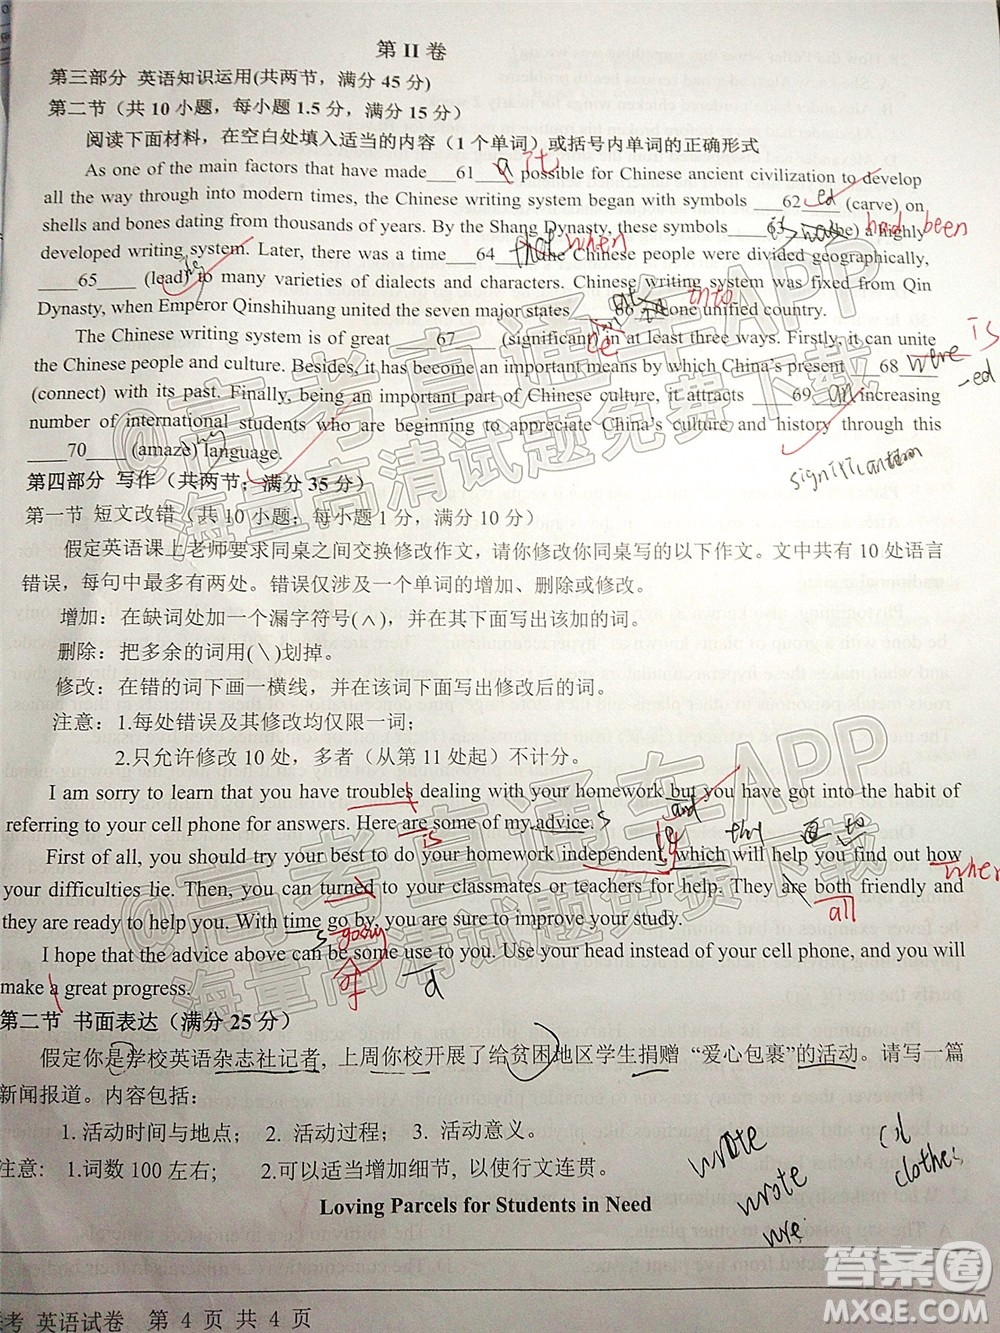 第 II 卷
第三部分 英语知识运用(共两节，满分 45 分)
第二节（共 10 小题，每小题 1.5 分，满分 15 分）
阅读下面材料，在空白处填入适当的内容（1 个单词）或括号内单词的正确形式
a it
As one of the main factors that have made___61___ possible for Chinese ancient civilization to develop
ed
all the way through into modern times, the Chinese writing system began with symbols ___62___ (carve) on
had been
shells and bones dating from thousands of years. By the Shang Dynasty, these symbols ___63___ (be) a highly
that when
developed writing system. Later, there was a time___64___the Chinese people were divided geographically,
___65___ (lead) to many varieties of dialects and characters. Chinese writing system was fixed from Qin
into
Dynasty, when Emperor Qinshihuang united the seven major states ___66___ one unified country.
The Chinese writing system is of great ___67___ (significant) in at least three ways. Firstly, it can unite
ce were is
the Chinese people and culture. Besides, it has become an important means by which China's present ___68___
-ed
(connect) with its past. Finally, being an important part of Chinese culture, it attracts ___69___ increasing
an
number of international students who are beginning to appreciate China's culture and history through this
___70___ (amaze) language.
第四部分 写作（共两节；满分 35 分）
第一节 短文改错（共 10 小题；每小题 1 分，满分 10 分）
假定英语课上老师要求同桌之间交换修改作文，请你修改你同桌写的以下作文。文中共有 10 处语言
错误，每句中最多有两处。错误仅涉及一个单词的增加、删除或修改。
增加：在缺词处加一个漏字符号(∧)，并在其下面写出该加的词。
删除：把多余的词用(\)划掉。
修改：在错的词下画一横线，并在该词下面写出修改后的词。
注意：1.每处错误及其修改均仅限一词；
2.只允许修改 10 处，多者（从第 11 处起）不计分。
I am sorry to learn that you have troubles dealing with your homework but you have got into the habit of
and
referring to your cell phone for answers. Here are some of my advice.
is
First of all, you should try your best to do your homework independent, which will help you find out how
ly
your difficulties lie. Then, you can turned to your classmates or teachers for help. They are both friendly and
all
they are ready to help you. With time go by, you are sure to improve your study.
going
I hope that the advice above can be some use to you. Use your head instead of your cell phone, and you will
of d
make a great progress.
第二节 书面表达（满分 25 分）
假定你是学校英语杂志社记者，上周你校开展了给贫困地区学生捐赠 “爱心包裹”的活动。请写一篇
新闻报道。内容包括：
1. 活动时间与地点； 2. 活动过程； 3. 活动意义。
注意： 1.词数 100 左右； 2.可以适当增加细节，以使行文连贯。
wrote
clothes
wrote
Loving Parcels for Students in Need
考 英语试卷 第 4 页 共 4 页
@高考直通车APP
海量高清试题免费下载
@高考直通车APP
海量高清试题免费下载
答案圈
MXQE.COM